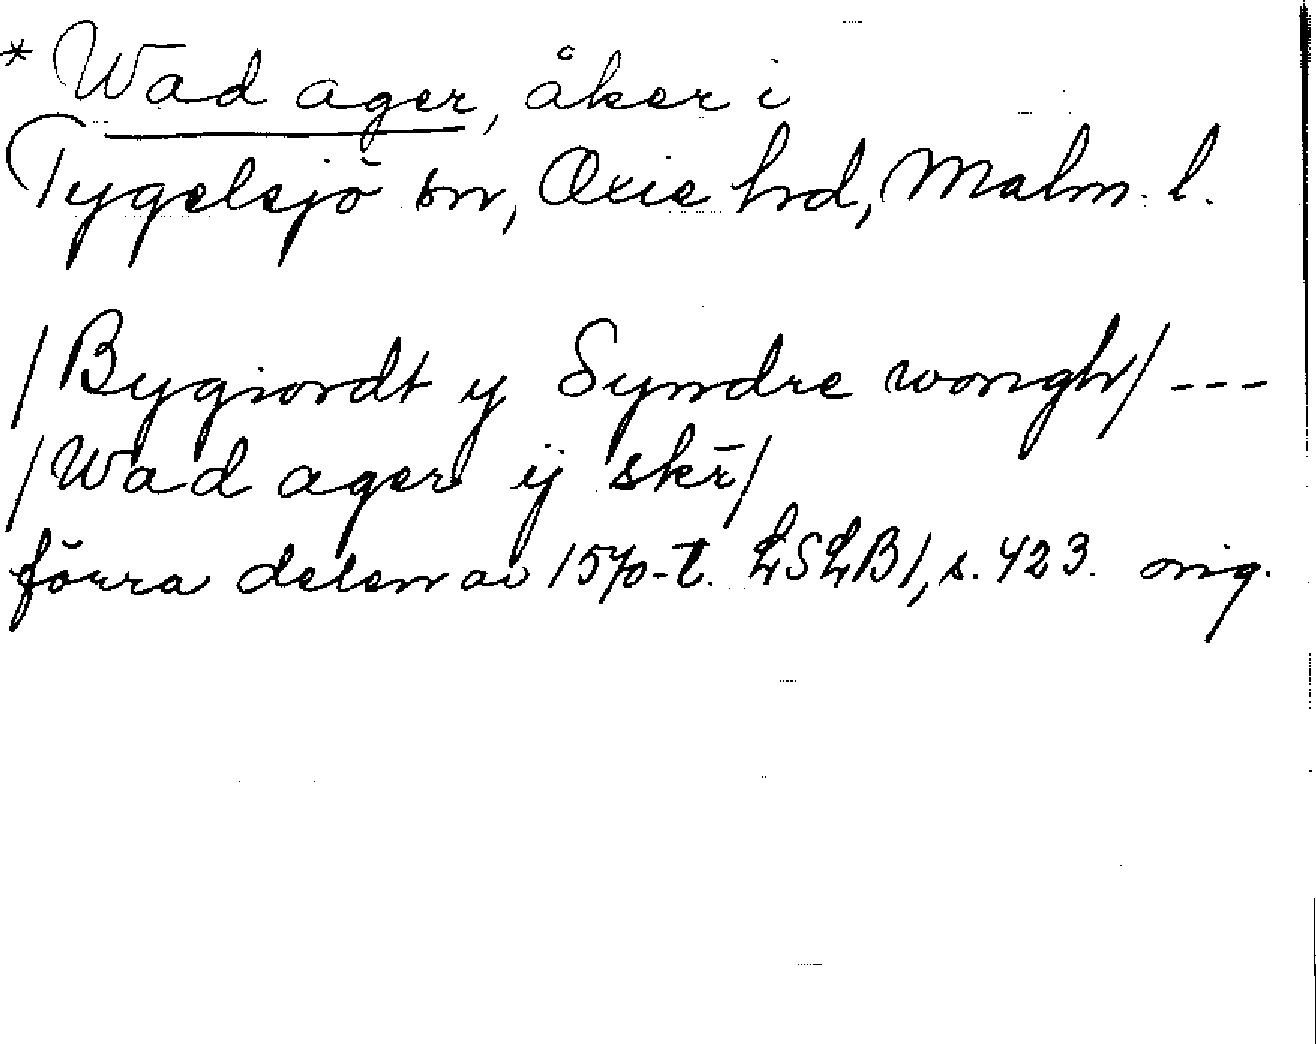 * Wad ager, åker i
Tygelsjö sn, Oxie hrd, Malm. l.
/Bygiordt y Syndre wongh/ ---
/Wad ager ij skr̄/
förra delen av 1570-t. LSLB1, s. 423. orig.